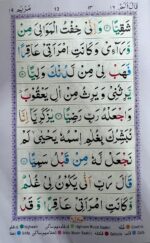 شَقِيًّا ۞ وَإِنِّي خِفْتُ الْمَوَالِيَ مِنْ
وَرَآءِي وَكَانَتِ امْرَأَتِي عَاقِرًا
فَهَبْ لِي مِنْ لَّدُنْكَ وَلِيًّا ۞
يَّرِثُنِي وَيَرِثُ مِنْ اٰلِ يَعْقُوبَ
وَاجْعَلْهُ رَبِّ رَضِيًّا ۞ يٰزَكَرِيَّآ إِنَّا
نُبَشِّرُكَ بِغُلٰمِ اسْمُهٗ يَحْيٰى لَمْ
نَجْعَلْ لَّهٗ مِنْ قَبْلُ سَمِيًّا ۞
قَالَ رَبِّ أَنّٰى يَكُونُ لِي غُلٰمٌ
وَّكَانَتِ امْرَأَتِي عَاقِرًا وَّقَدْ